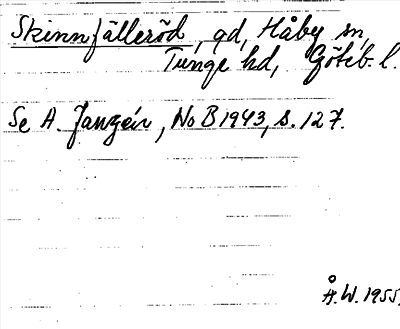 Skinnfälleröd, gd, Håby sn,
Tunge hd, Göteb. l.
Se A. Janzén, NoB 1943, s. 127.
Å.W. 1955.